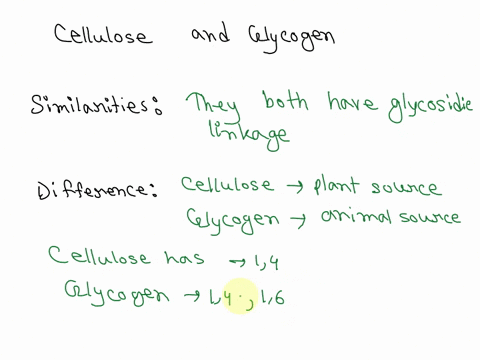 Cellulose and Glycogen
Similarities: They both have glycosidic
linkage
Difference: Cellulose → plant source
Glycogen → animal source
Cellulose has → 1,4
Glycogen → 1,4, 1,6